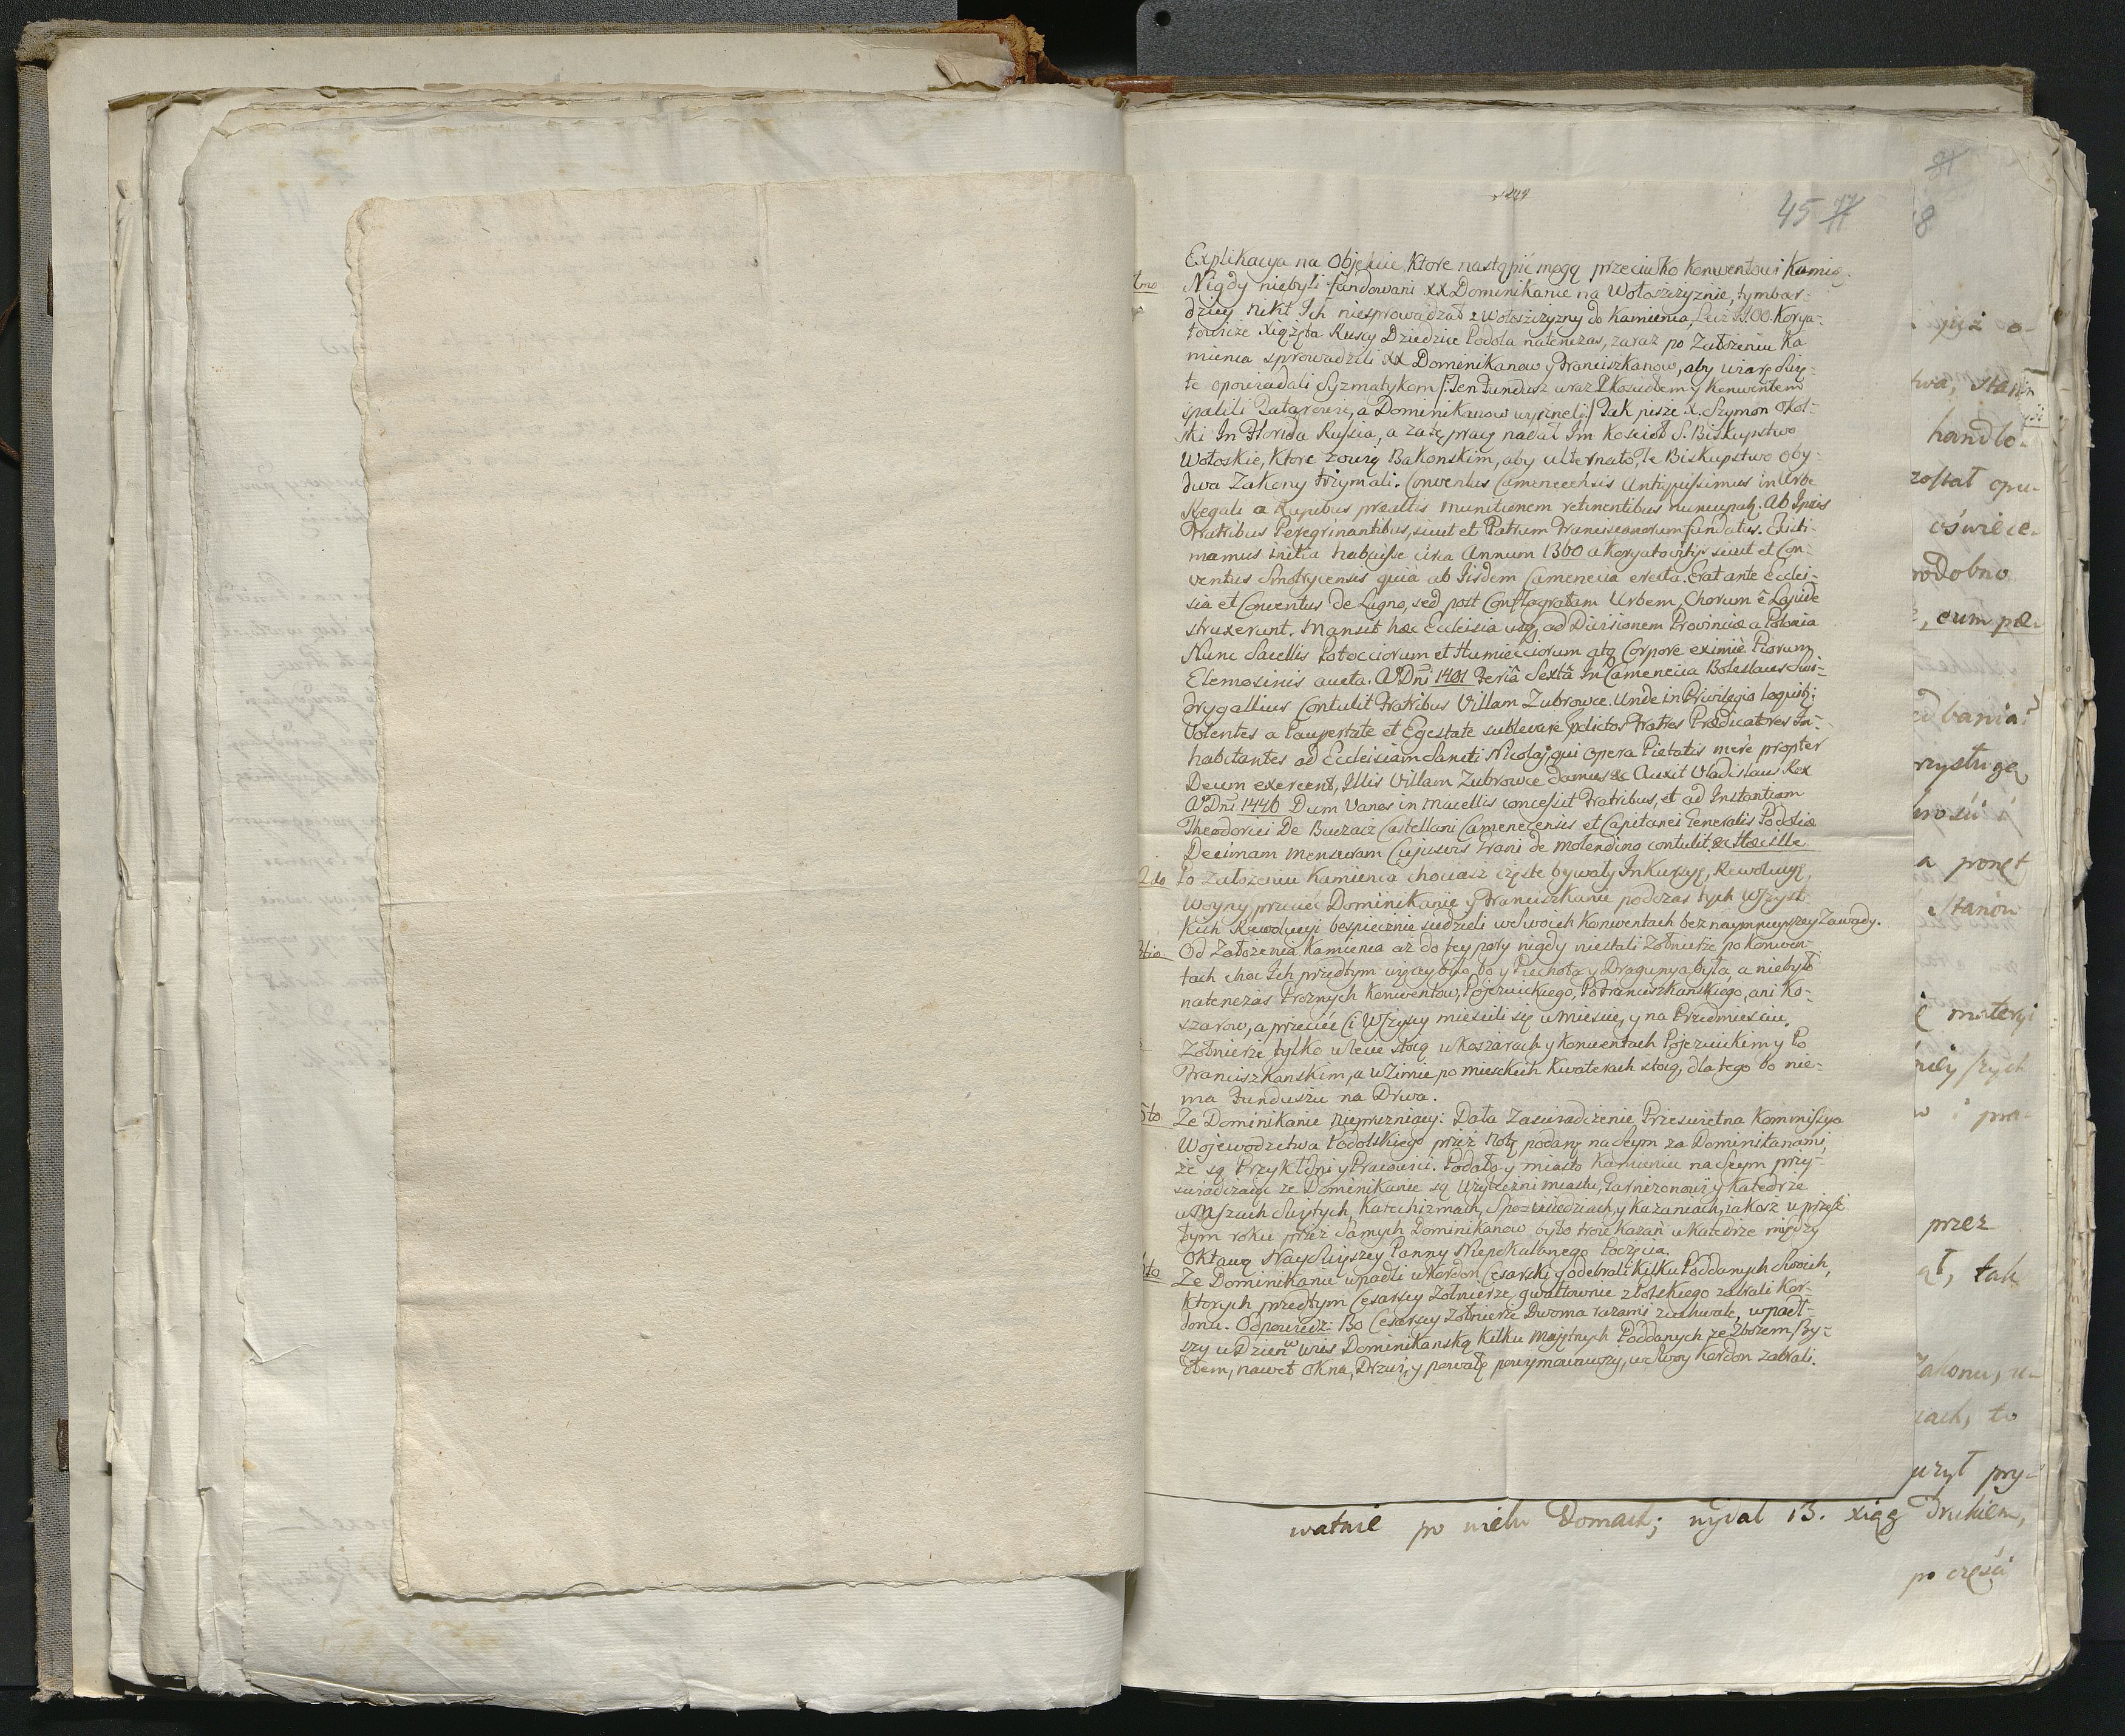 244
45
Explikacya na Objekcie, Ktore nastąpić mogą przeciwko Konwentowi Kamie-
1mo Nigdy niebyli fundowani XX Dominikanie na Wołoszczyznie, tymbar-
dziey nikt Ich niesprowadzał z Wołoszczyzny do Kamienca, Lecz OO Korya-
towicze Xiążęta Ruscy Dziedzice Podola natenczas, zaraz po Założeniu Ka
mienca sprowadzili XX Dominikanow y Franciszkanow, aby wiarę Swię-
te opowiadali Syzmatykom /: Ten Fundusz wraz z Kosciołem y Konwentem
spalili Tatarowie, a Dominikanow wyrzneli :/ Tak pisze X. Szymon Okol-
ski In Florida Russia, a zatę pracę nadał Im Kościoł S. Biskupstwo
Wołoskie, Ktore zowią Bakonskim, aby alternato, te Biskupstwo oby-
dwa Zakony trzymali. Conventus Camenecensis Antiquissimus in Urbe
Regali a Rupibus præaltis munitionem retinentibus nuncupatq. Ab Ipsis
Fratribus Peregrinantibus, sicut et Patrum Franciscanorum fundatus. Existi-
mamus initia habuisse circa Annum 1360 a Koryatovitijs sicut et Con-
ventus Smotrycensis quia ab Iisdem Camenecia erecta. Erat ante Eccle-
sia et Conventus de Ligno, sed post Conflagratam Urbem, Chorum è Lapide
struxerunt. Mansit hæc Ecclesia usq, ad Divisionem Provinciæ a Polonia
Nunc Sacellis Potocciorum et Humiecciorum atq Corpore eximiè Piorum
Elemosinis aucta. Ao Dni 1401 Feriâ Sextâ In Camenecia Boleslaus Swi-
drygallius Contulit Fratribus Villam Zubrowce. Unde in Privilegio loquit:
Volentes a Paupertate et Egestate sublevare pdictos Fratres Prædicatores In-
habitantes ad Ecclesiam Sancti Nicolaj, qui opera Pietatis merè propter
Deum exercent, Illis Villam Zubrowce damus &c Auxit Vladislaus Rex
Ao Dni 1446 Dum Vanos in Macellis concessit Fratribus, et ad Instantiam
Theodorici De Buczacz Castellani Camenecensis et Capitanei Generalis Podoliæ
Decimam mensuram Cujusvis Grani de molendino contulit &c Hæc ille
2do Po założeniu Kamienca chociaż częste bywały Inkursyę, Rewolucyę,
Woyny, przecież Dominikanie y Franciszkanie podczas tych Wszyst-
kich Rewolucyi bespiecznie siedzieli w swoich Konwentach bez naymnieyszey Zawady.
3tio Od Założenia Kamienca aż do tey pory nigdy niestali Żołnierze po Konwen-
tach choc Ich przedtym więcey było, bo y Piechota y Dragunya była, a niebyło
natenczas Prożnych Konwentow, Pojezuickiego, Pofranciszkanskiego, ani Ko-
szarow, a przecież Ci Wszyscy miescili się w miescie, y na Przedmiesciu.
Żołnierze tylko w lecie stoią w koszarach y Konwentach Pojezuickim y Po
Franciszkanskim, a w Zimie po mieskich Kwaterach stoią, dla tego bo nie-
ma Funduszu na Drwa.
5to Ze Dominikanie Nieprozniący: Dała Zaswiadczenie Prześwietna Kommissya
Wojewodztwa Podolskiego przez Notę podaną na Seym za Dominikanami,
że są Przykładni y Pracowici. Podało y miasto Kamieniec na Seym przy-
swiadczaiąc ze Dominikanie są Użyteczni miastu, Garnizonowi y Katedrze
w Mszach Swiętych, Katechizmach, Spowiedziach, y Kazaniach, iakoż w przesz
tym roku przez samych Dominikanow było troie kazań w katedrze między
Oktawą Nayswiętszey Panny Niepokalanego Poczęcia.
6to Ze Dominikanie wpadli w Kordon Cesarski y odebrali Kilku Poddanych Swoich,
Ktorych przedtym Cesarscy Żołnierze, gwałtownie z Polskiego zabrali Kor-
donu. Odpowiedz: Bo Cesarscy Żołnierze Dwoma razami zuchwale, wpadł-
szy w Dzień w wies Dominikanską Kilku Majętnych Poddanych ze Zbożem, By-
dłem, nawet Okna, Drzwi, y powałę powymowawszy, w swoy Kordon zabrali.
watnie po wielu Domach; wydał 13. xiąg Drukiem,
po części
handlo-
został opu-
oświece-
, cum pæ-
Stanow
materyi
przez
, tak
, to
użył pry-